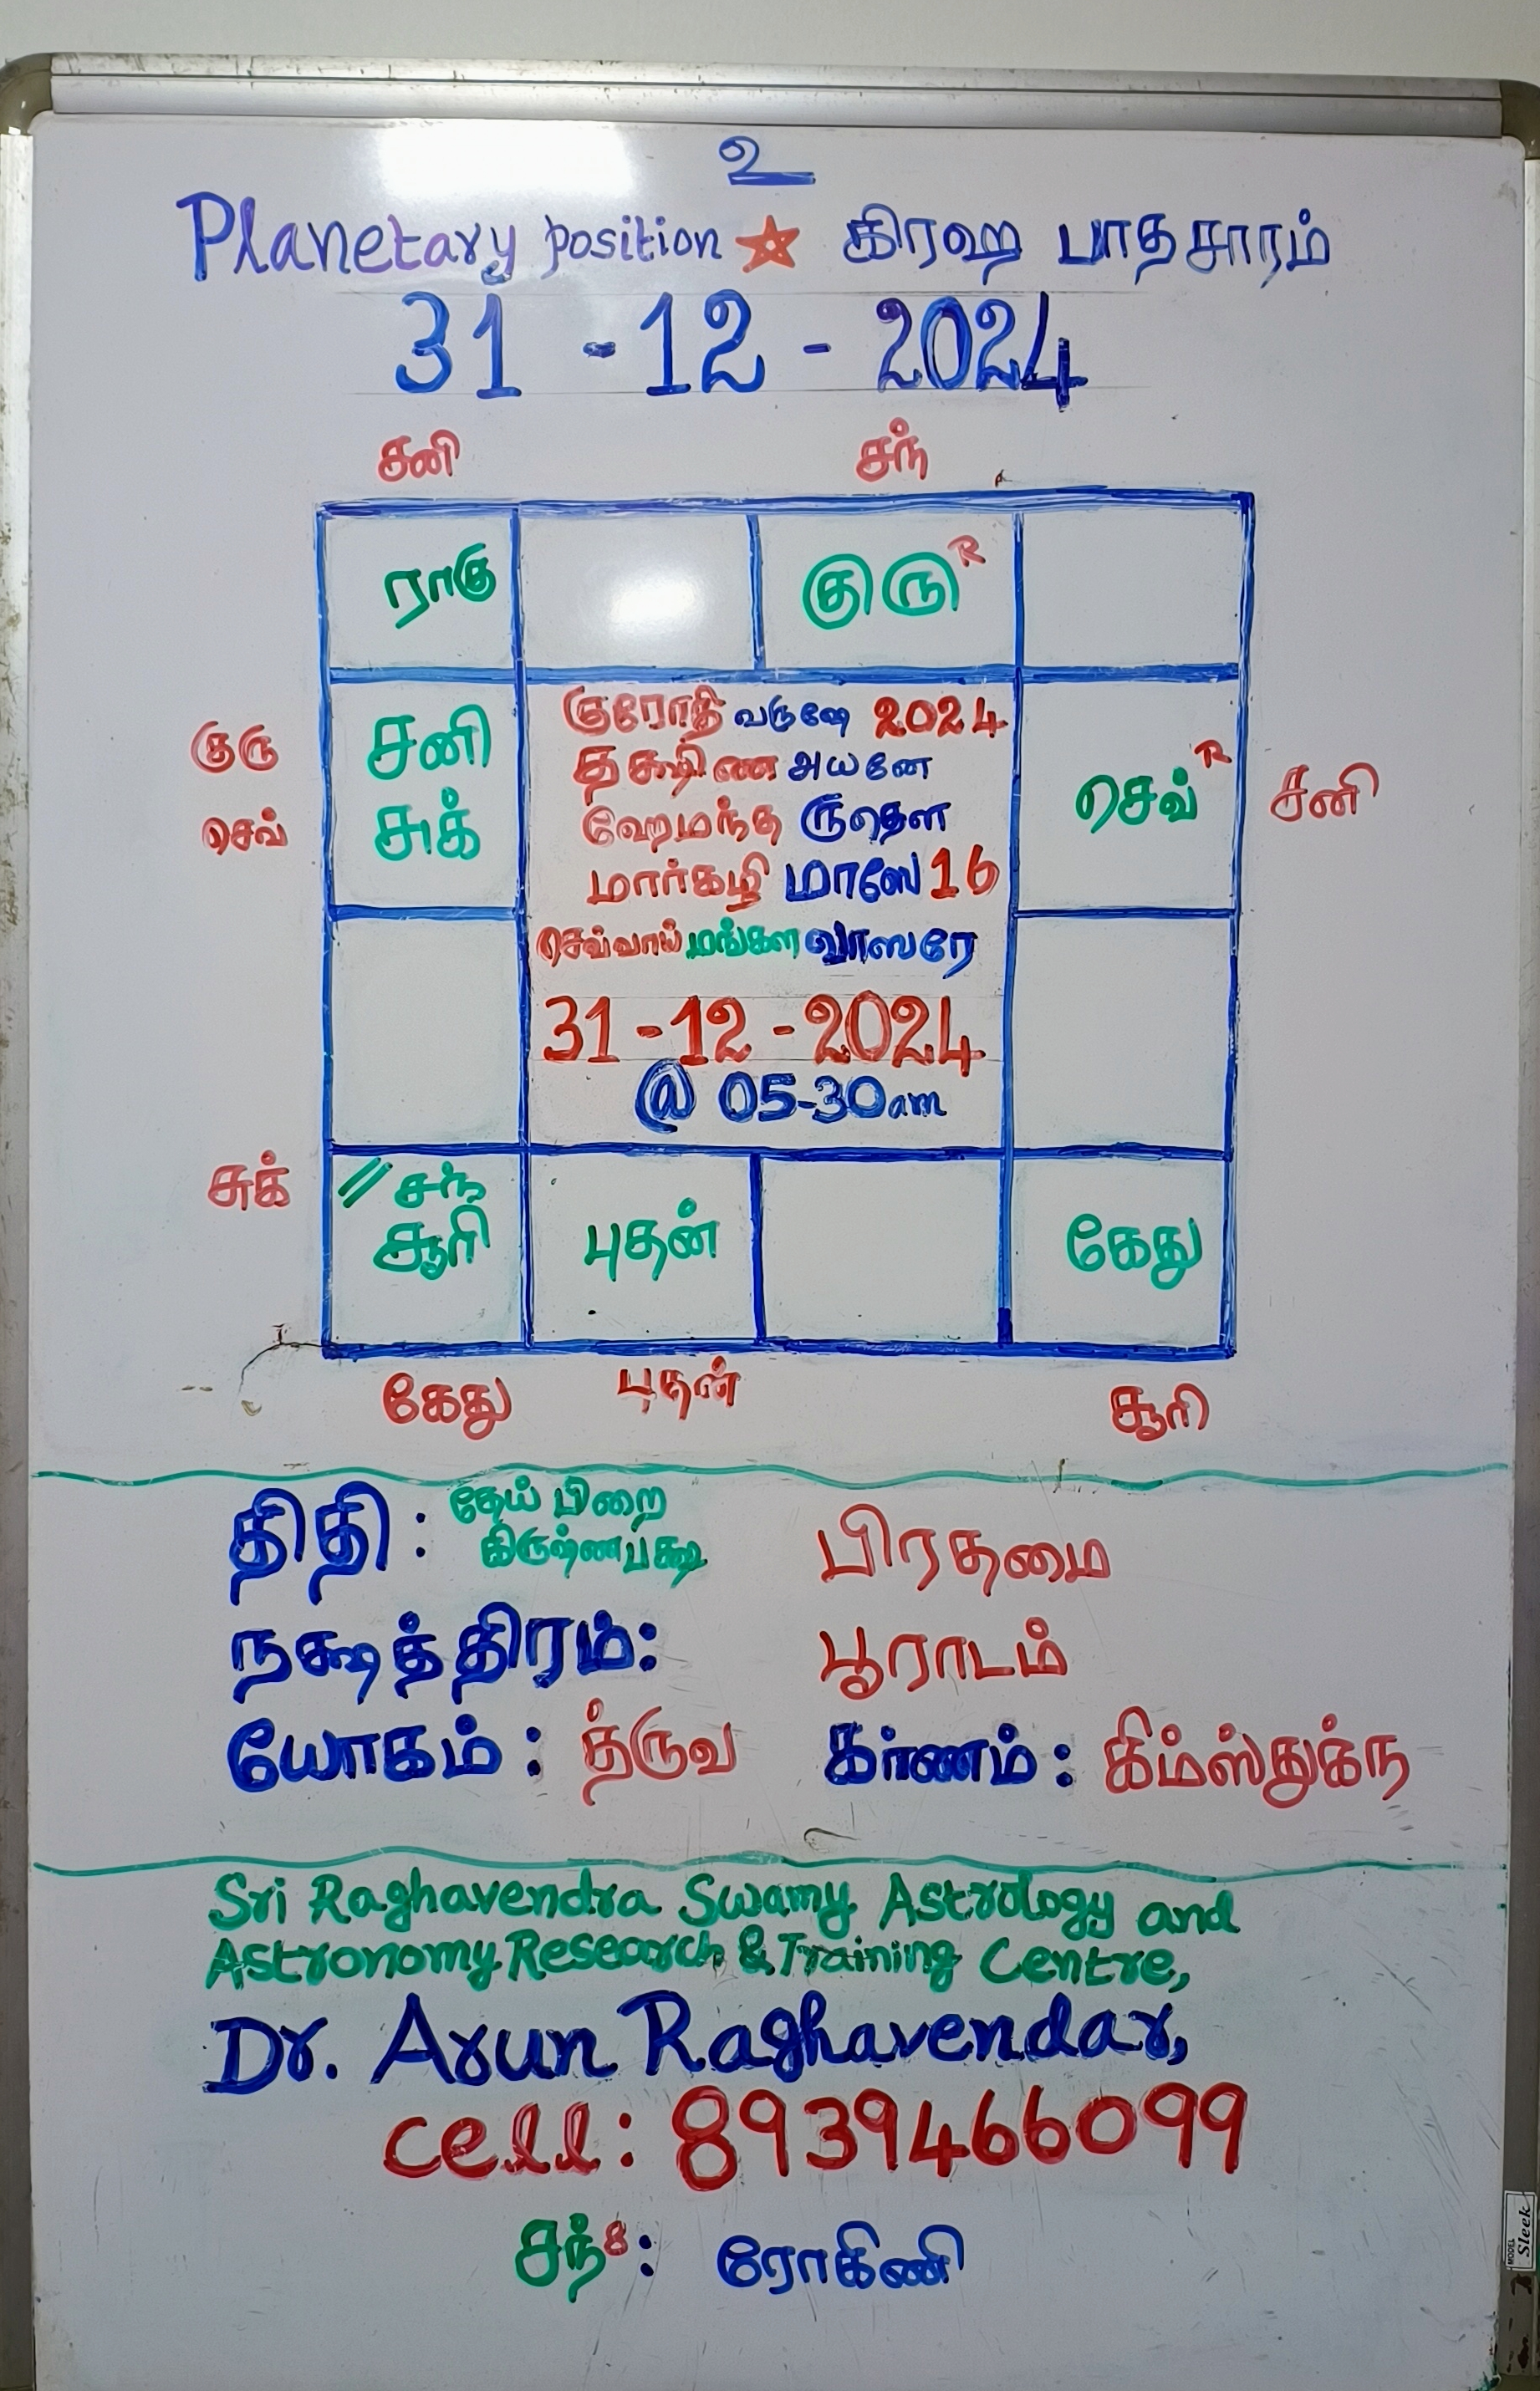 உ
Planetary position கிரஹ பாதசாரம்
31 - 12 - 2024
சனி சந்
ராகு குரு R
குரு சனி செவ் R சனி
செவ் சுக்
குரோதி வருஷே 2024
தக்ஷிண அயனே
ஹேமந்த ருதௌ
மார்கழி மாஸே 16
செவ்வாய் மங்கள வாஸரே
31-12-2024
@ 05-30am
சுக் // சந் புதன் கேது
சூரி
கேது புதன் சூரி
திதி : தேய் பிறை பிரதமை
கிருஷ்ணபக்ஷ
நக்ஷத்திரம்: பூராடம்
யோகம் : த்ருவ கர்ணம் : கிம்ஸ்துக்ந
Sri Raghavendra Swamy Astrology and
Astronomy Research & Training Centre,
Dr. Arun Raghavendar,
cell: 8939466099
சந்8: ரோகிணி
MODEL Sleek